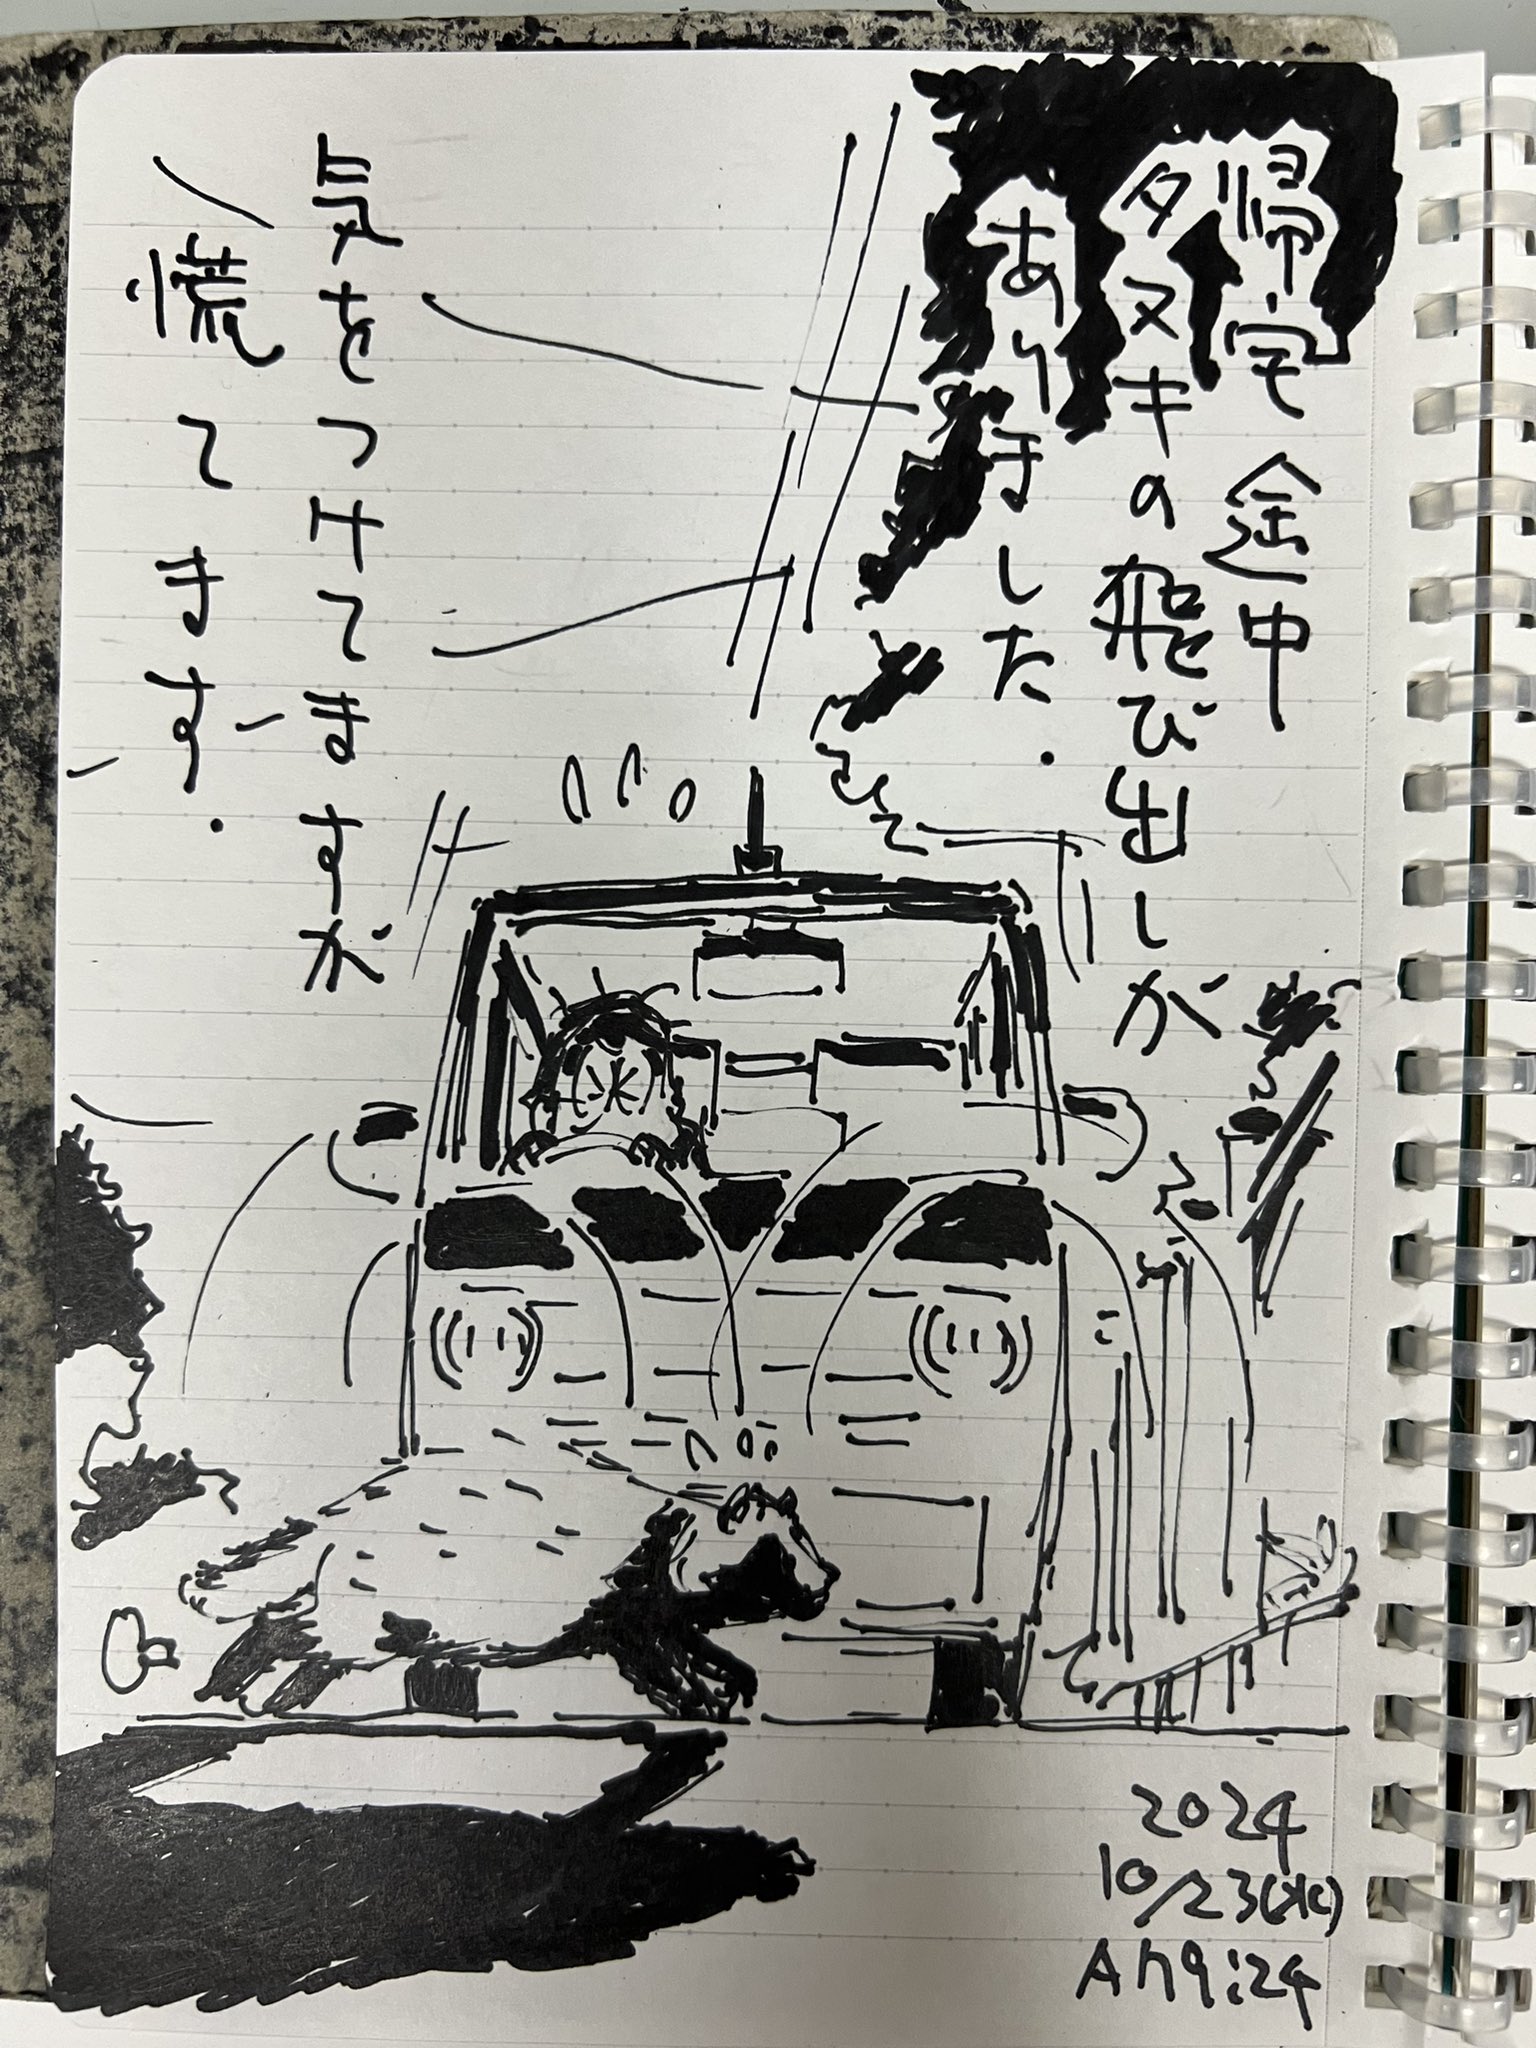 帰宅途中
タヌキの飛び出しが
ありました.
気をつけてますが
慌てます.
2024
10/23(水)
AM9:24